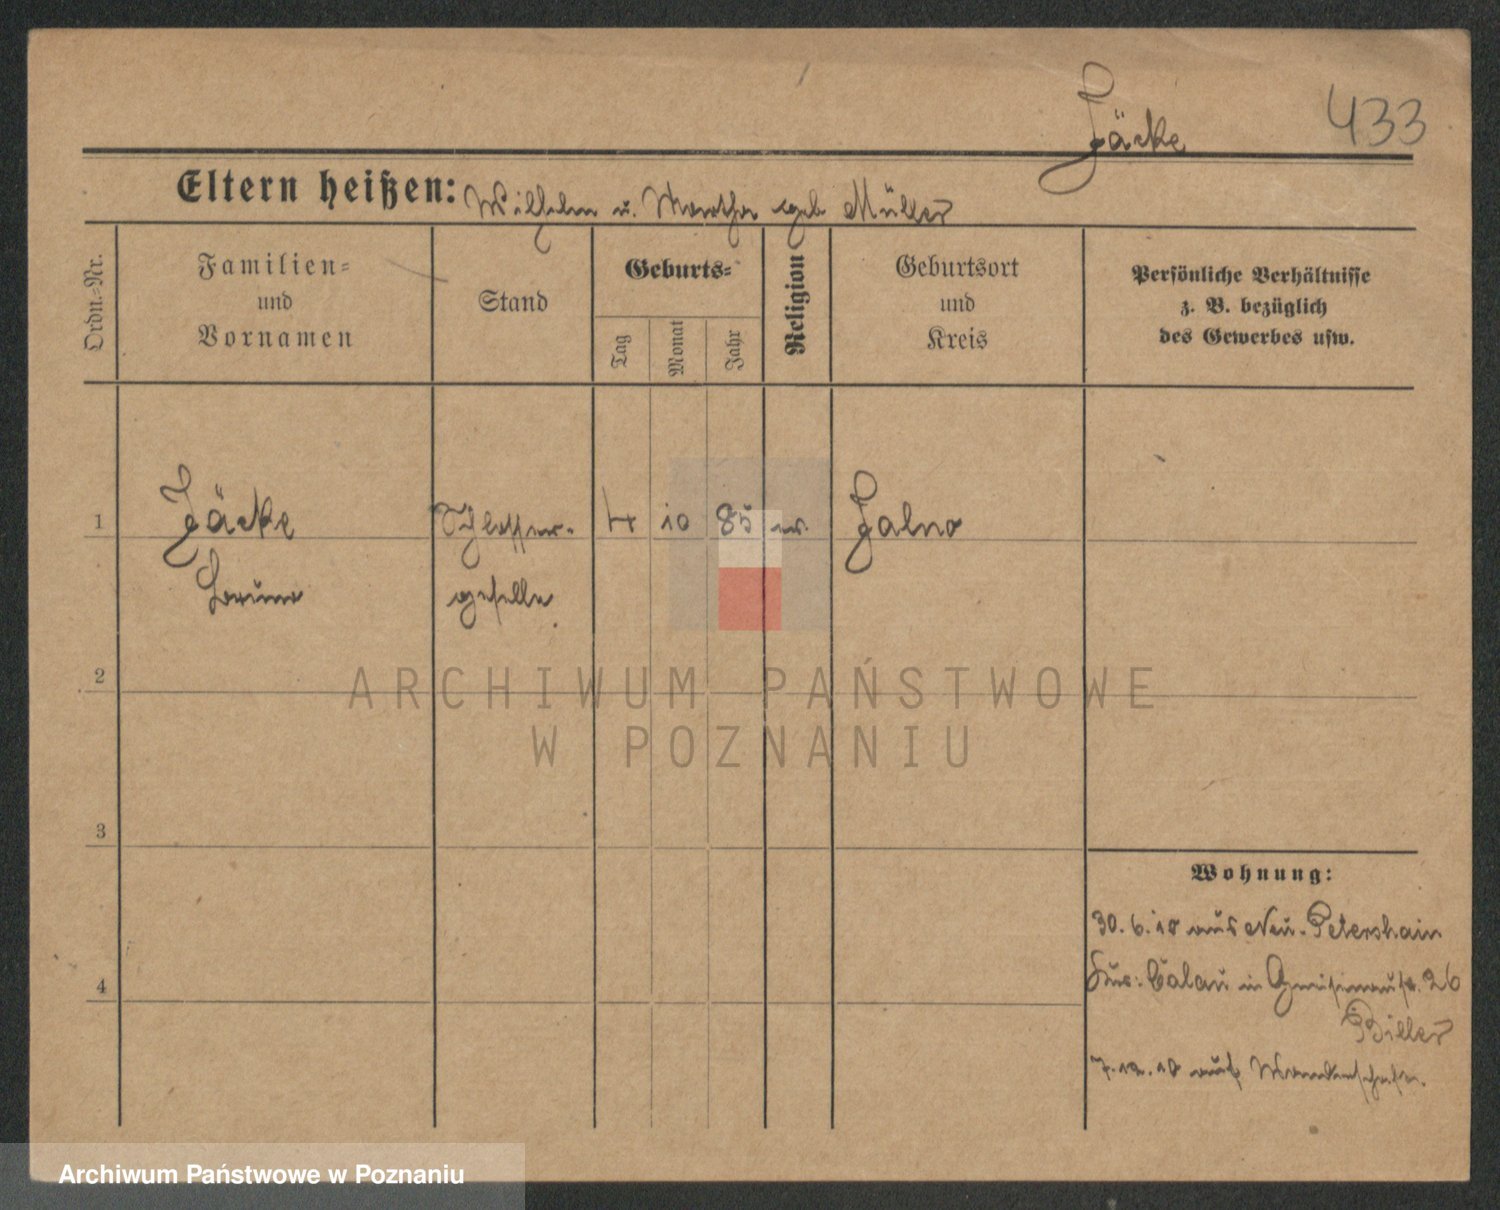 433
Jäcke
Eltern heißen: Wilhelm u. Martha geb. Müller
Ordn.-Nr.
Familien-
und
Vornamen
Stand
Geburts-
Tag
Monat
Jahr
Religion
Geburtsort
und
Kreis
Persönliche Verhältnisse
z. B. bezüglich
des Gewerbes usw.
1 Jäcke Schlosser- 4 10 85 ev. Jalno
Bruno geselle
2
3
4
Wohnung:
30.6.10 aus Neu-Petershain
Calau in Gneisenaustr. 26
Biller
7.12.10 auf Wanderschaft.
ARCHIWUM PAŃSTWOWE
W POZNANIU
Archiwum Państwowe w Poznaniu